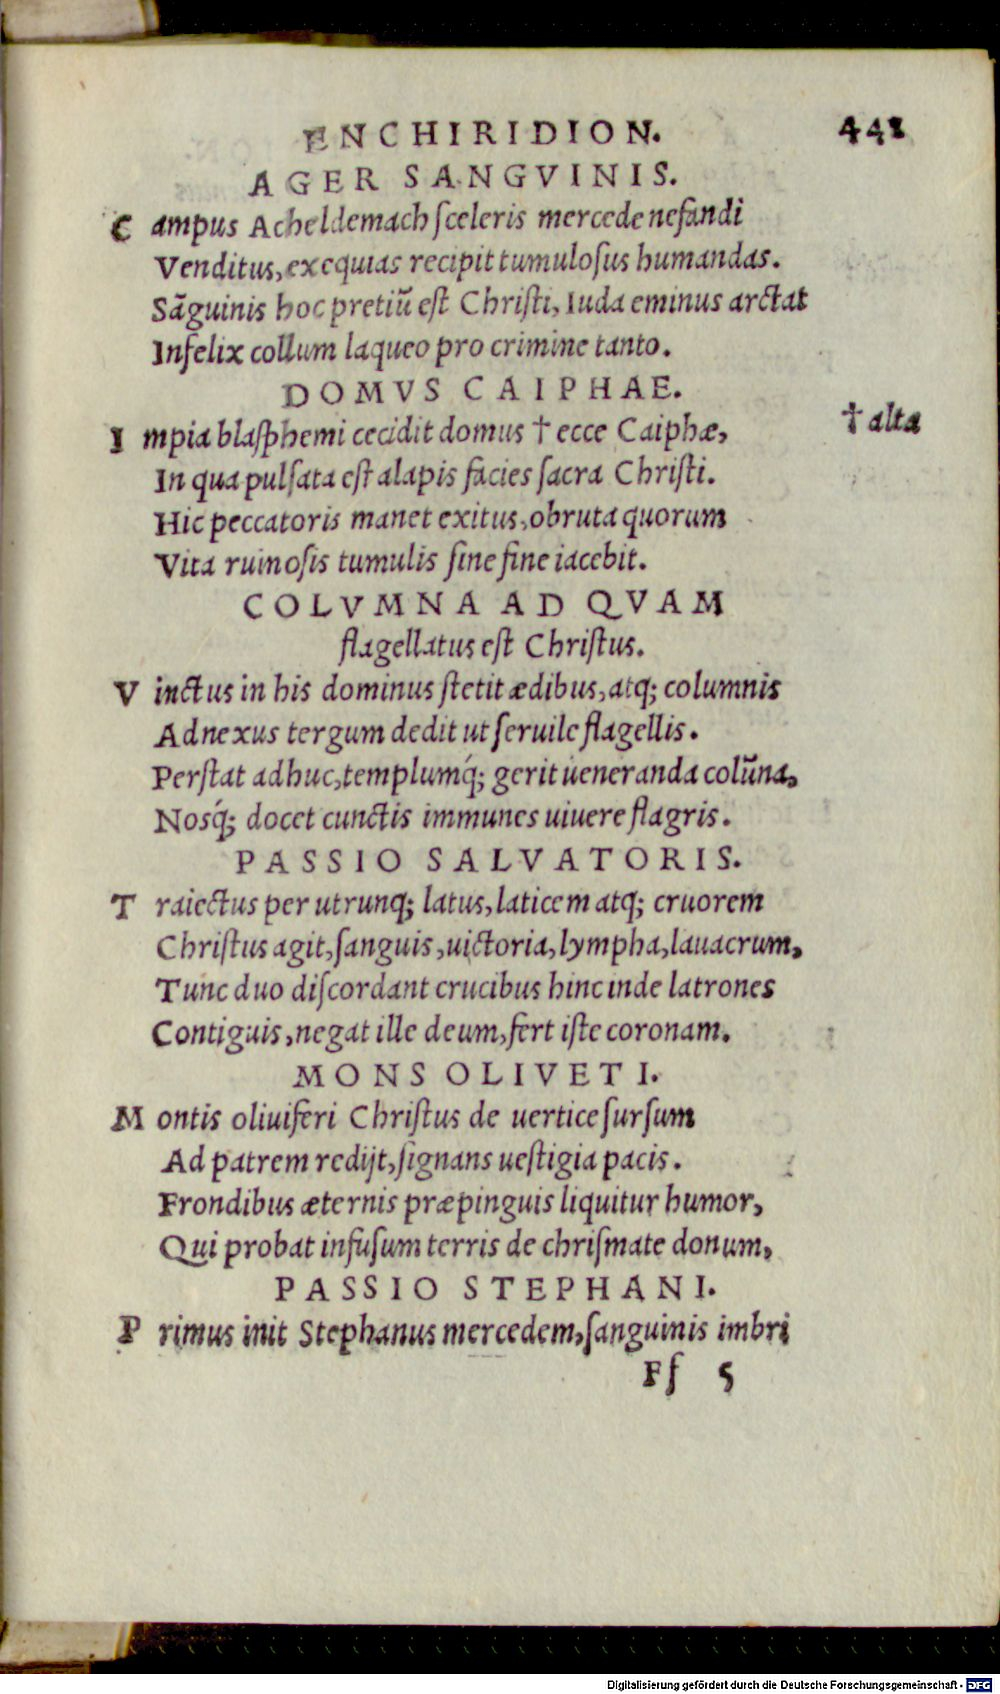 ENCHIRIDION. 441
AGER SANGVINIS.
C ampus Acheldemach ſceleris mercede nefandi
Venditus, exequias recipit tumuloſus humandas.
Sãguinis hoc pretiũ eſt Chriſti, Iuda eminus arctat
Infelix collum laqueo pro crimine tanto.
DOMVS CAIPHAE.
I mpia blaſphemi cecidit domus † ecce Caiphæ, † alta
In qua pulſata eſt alapis facies ſacra Chriſti.
Hic peccatoris manet exitus, obruta quorum
Vita ruinoſis tumulis ſine fine iacebit.
COLVMNA AD QVAM
flagellatus eſt Chriſtus.
V inctus in his dominus ſtetit ædibus, atq; columnis
Adnexus tergum dedit ut ſeruile flagellis.
Perſtat adhuc, templumq́; gerit ueneranda colũna,
Nosq́; docet cunctis immunes uiuere flagris.
PASSIO SALVATORIS.
T raiectus per utrunq; latus, laticem atq; cruorem
Chriſtus agit, ſanguis, uictoria, lympha, lauacrum,
Tunc duo diſcordant crucibus hinc inde latrones
Contiguis, negat ille deum, fert iſte coronam.
MONS OLIVETI.
M ontis oliuiferi Chriſtus de uertice ſurſum
Ad patrem redijt, ſignans ueſtigia pacis.
Frondibus æternis præpinguis liquitur humor,
Qui probat infuſum terris de chriſmate donum,
PASSIO STEPHANI.
P rimus init Stephanus mercedem, ſanguinis imbri
Fſ 5
Digitalisierung gefördert durch die Deutsche Forschungsgemeinschaft - DFG